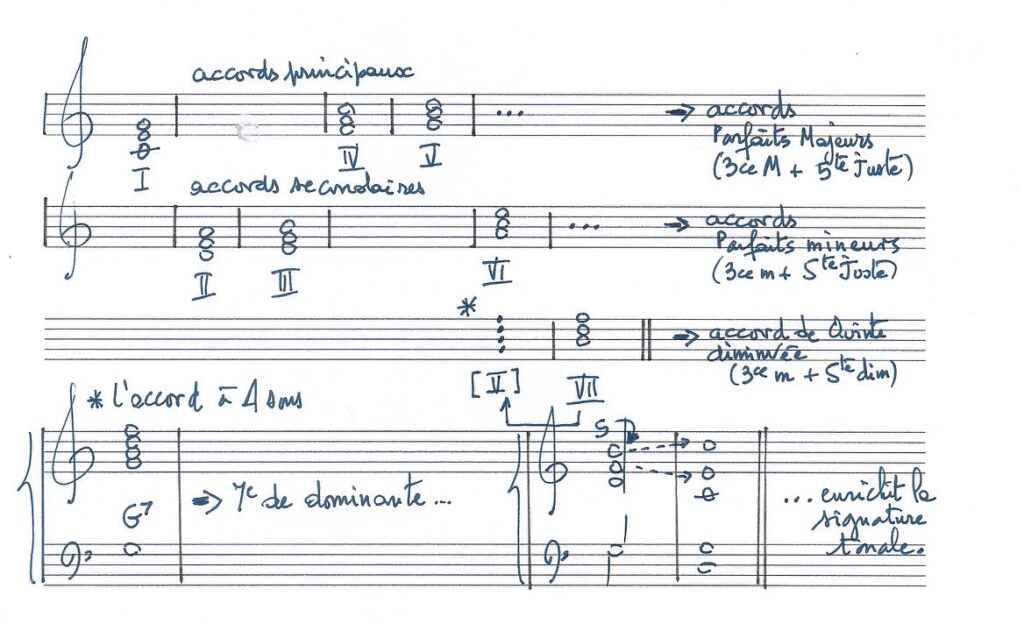 accords principaux
... → accords
Parfaits Majeurs
(3ce M + 5te Juste)
I IV V
accords secondaires
... → accords
Parfaits mineurs
(3ce m + 5te Juste)
II III VI
*
→ accord de Quinte
diminuée
(3ce m + 5te dim)
[V] VII
* l'accord à 4 sons
G7
→ 7e de dominante...
S D
... enrichit la
signature
tonale.